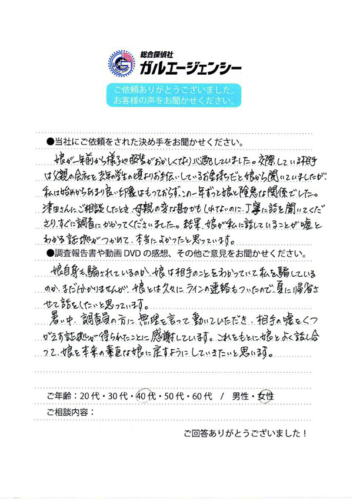 総合探偵社
ガルエージェンシー
ご依頼ありがとうございました。
お客様の声をお聞かせください。
●当社にご依頼をされた決め手をお聞かせください。
娘が一年前から様子や服装がおかしくなり心配していました。交際している相手
は父親の会社と去年学生の頃よりお手伝いしているお客様だと娘から聞いていましたが、
私は始めからあまり良い印象はもってがらず、この一年ずっと娘と険悪な関係でした。
津田さんにご相談したとき、母親の変な勘かもしれないのに、丁寧に話を聞いてくだ
さりすぐに調査にかかってくださいました。結果、娘が私に話していることが嘘と
わかる証拠がつかめて、本当によかったと思っています。
●調査報告書や動画DVDの感想、その他ご意見をお聞かせください。
娘自身も騙されているのか、娘は相手のことをわかっていて私を騙している
のか、まだ分かりませんが、娘とは久々にラインの連絡もついたので、夏に帰省さ
せて話をしたいと思っています。
暑い中、調査員の方に無理を言って動いていただき、相手の嘘をくつ
がえす証拠が得られたことに感謝しています。これをもとに娘とよく話し合
って、娘を本来の素直な娘に戻すようにしていきたいと思います。
ご年齢：20代・30代・40代・50代・60代 / 男性・女性
ご相談内容：
ご回答ありがとうございました！